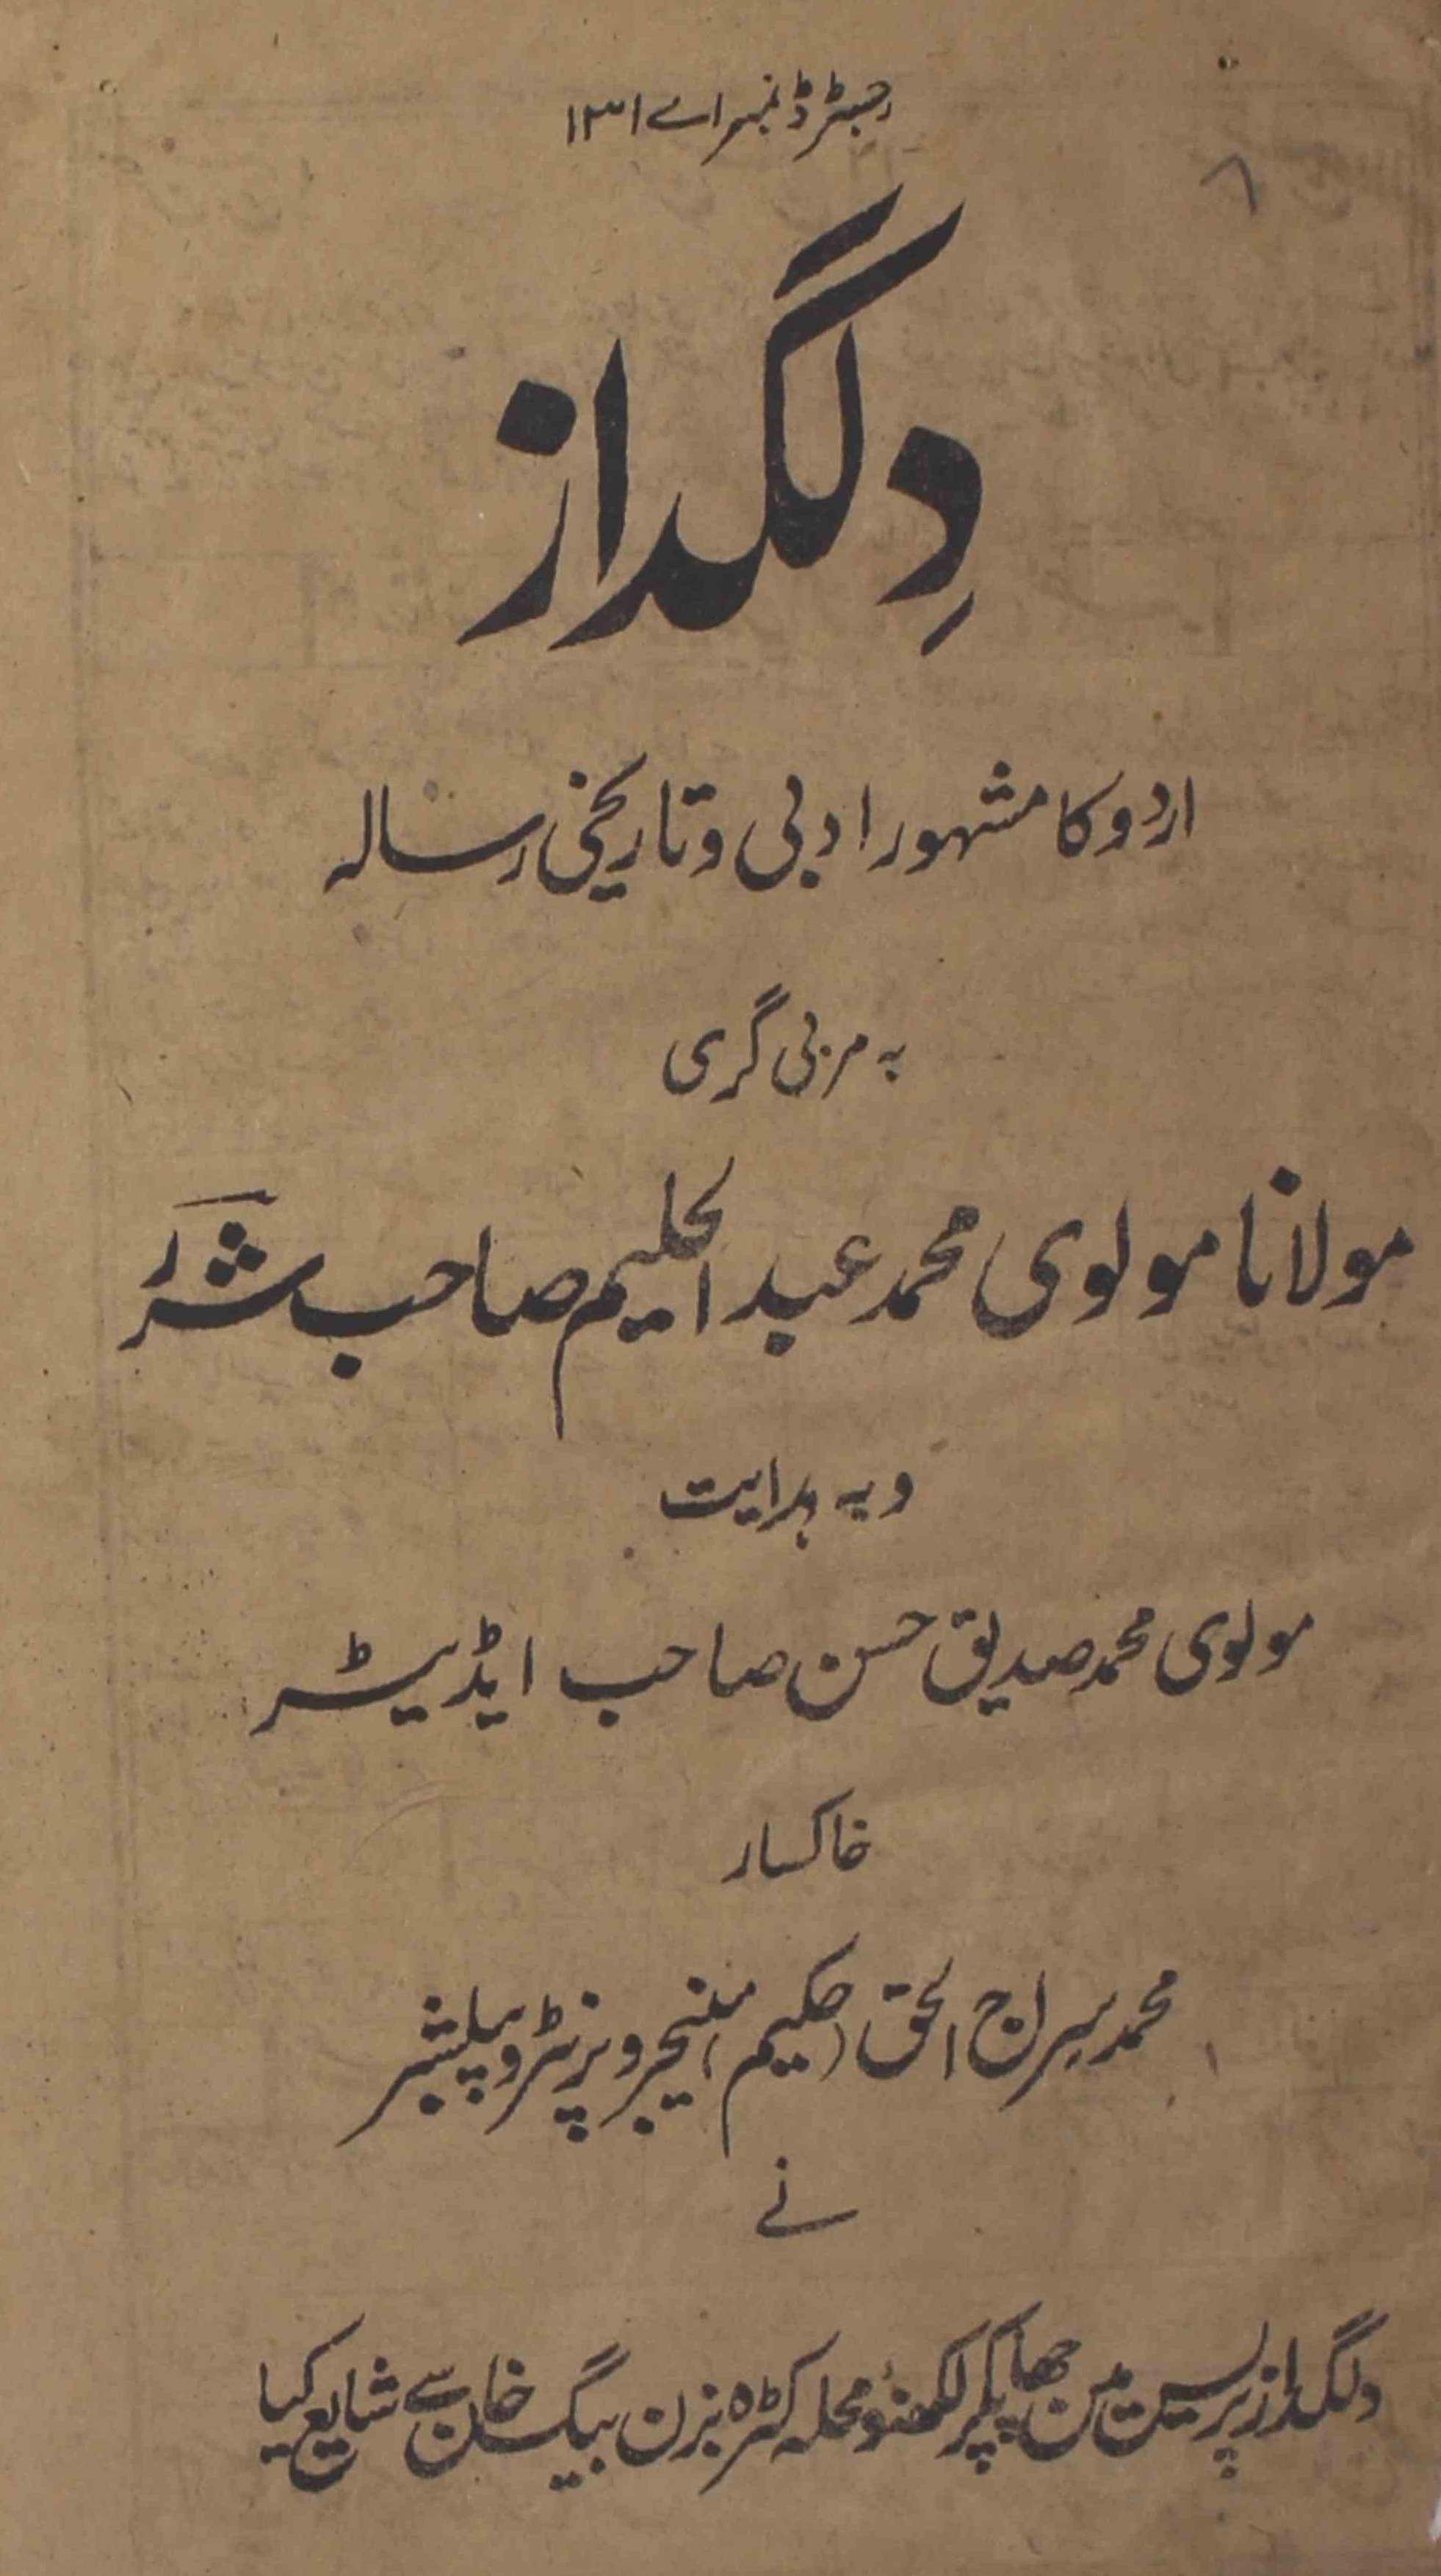 رجسٹرڈ نمبر اے ۱۳۱
دِلگداز
اردو کا مشہور ادبی و تاریخی رسالہ
بہ مربی گری
مولانا مولوی محمد عبد الحلیم صاحب شرر
و بہ ہدایت
مولوی محمد صدیق حسن صاحب ایڈیٹر
خاکسار
محمد سراج الحق (حکیم) منیجر و پرنٹر و پبلشر
نے
دلگداز پریس مین چھاپکر لکھنؤ محلہ کٹرہ بزن بیگ خان سے شایع کیا